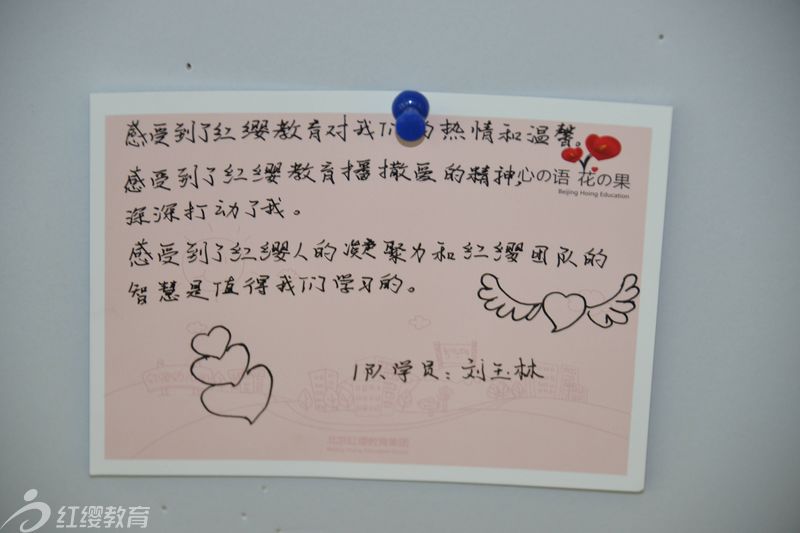 感受到了红缨教育对我们的热情和温馨。
感受到了红缨教育播撒爱的精神,
心の语 花の果
Beijing Hoing Education
深深打动了我。
感受到了红缨人的凝聚力和红缨团队的
智慧是值得我们学习的。
1队学员：刘玉林
北京红缨教育集团
Beijing Hoing Education Group
红缨教育